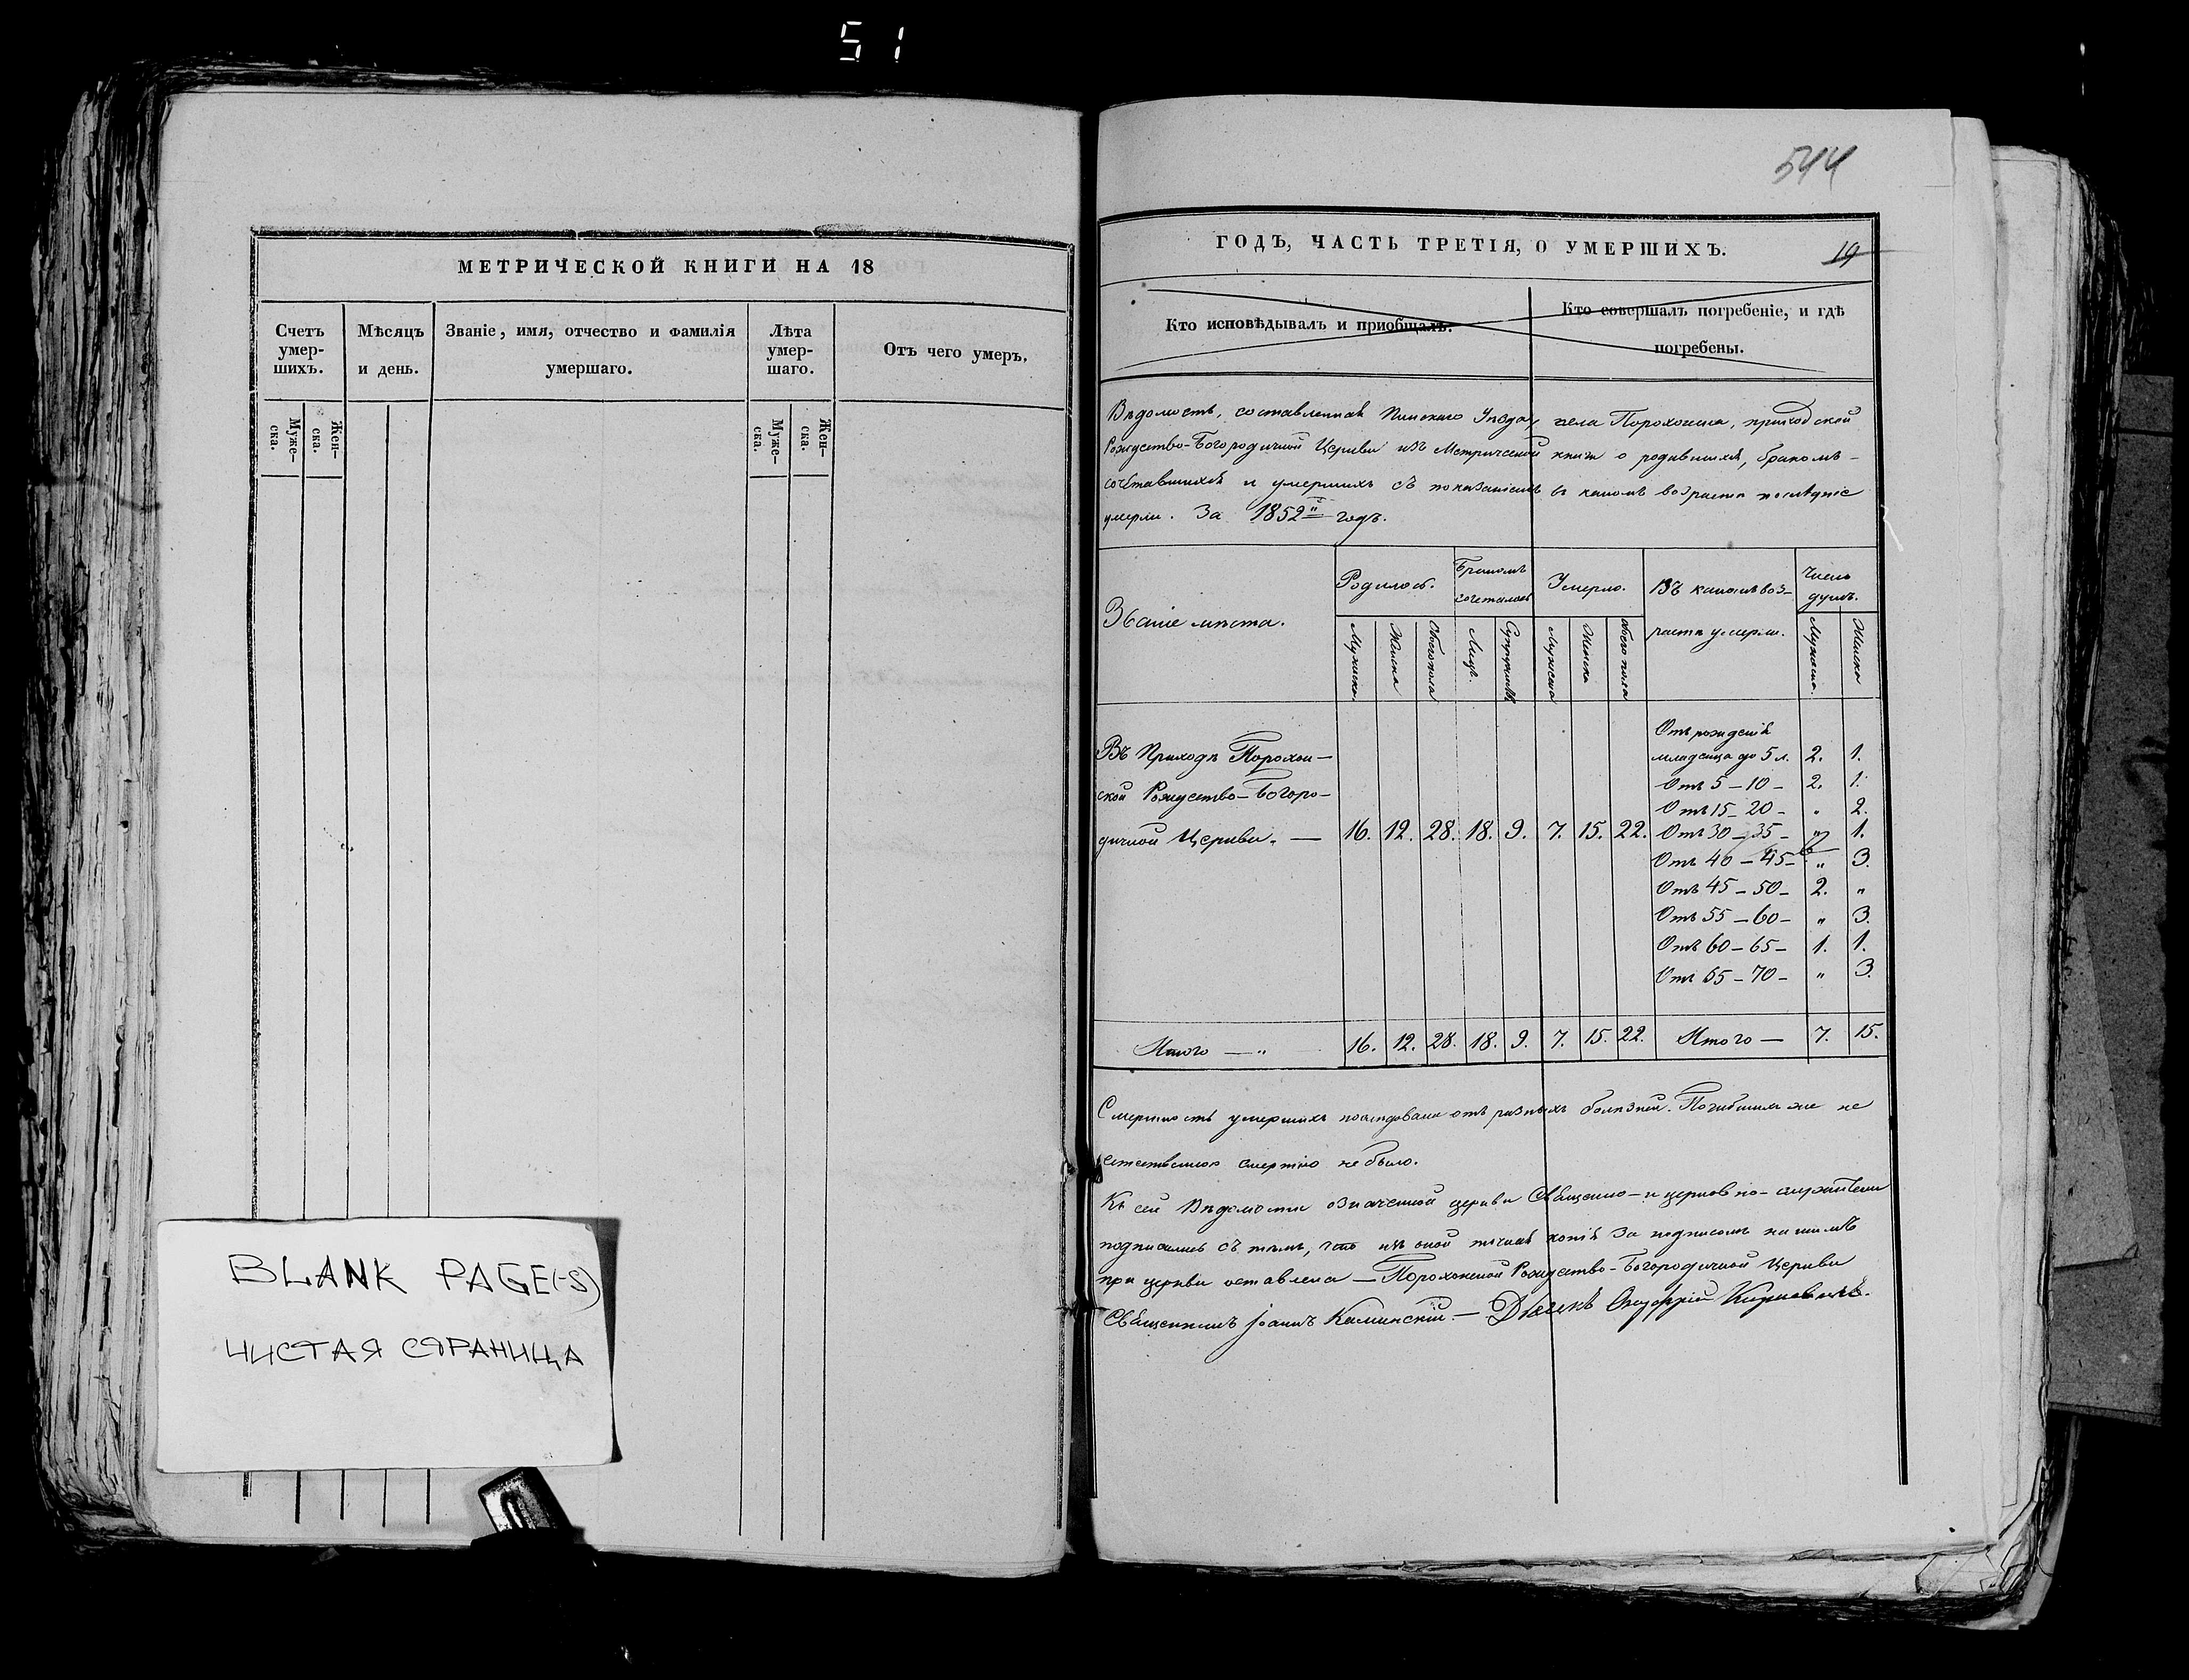 51
МЕТРИЧЕСКОЙ КНИГИ НА 18
Счетъ умер-шихъ.
Мѣсяцъ и день.
Званіе, имя, отчество и фамилія умершаго.
Лѣта умер-шаго.
Отъ чего умеръ.
Муже-ска.
Жен-ска.
Муже-ска.
Жен-ска.
BLANK PAGE(-S)
ЧИСТАЯ СТРАНИЦА
544
ГОДЪ, ЧАСТЬ ТРЕТІЯ, О УМЕРШИХЪ.
19
Кто исповѣдывалъ и приобщалъ.
Кто совершалъ погребеніе, и гдѣ погребены.
Вѣдомость, составленная Пинскаго Уѣзда, села Порохонска, приходской
Рождество-Богородичной Церкви изъ Метрической книги о родившихся, бракомъ-
сочетавшихся и умершихъ съ показаніемъ въ какомъ возрастѣ послѣдніе
умерли. За 1852й годъ.
Званіе мѣста.
Родилось.
Бракомъ сочеталось
Умерло.
Въ какомъ воз-
растѣ умерли.
Число душъ.
Мужеска
Женска
Обоего пола
Лицъ.
Супружествъ
Мужеска
Женска
Обоего пола
Мужеска.
Женска
Отъ рожденія
Въ Приходѣ Порохон-
младенца до 5 л. 2. 1.
Отъ 5 – 10 – 2. 1.
ской Рождество-Богоро-
Отъ 15 – 20 – „ 2.
дичной Церкви. — 16. 12. 28. 18. 9. 7. 15. 22. Отъ 30 – 35 – „ 1.
Отъ 40 – 45 – „ 3.
Отъ 45 – 50 – 2. „
Отъ 55 – 60 – „ 3.
Отъ 60 – 65 – 1. 1.
Отъ 65 – 70 – „ 3.
Итого — „ 16. 12. 28. 18. 9. 7. 15. 22. Итого — 7. 15.
Смертность умершихъ послѣдовала отъ разныхъ болѣзней. Погибшихъ же не
естественною смертію не было.
Къ сей Вѣдомости означенной церкви Священно-и церковно-служители
подписались съ тѣмъ, что изъ оной точная копія за подписомъ нашимъ
при церкви оставлена — Порохонской Рождество-Богородичной Церкви
Священникъ Іоаннъ Каминскій. — Дьячекъ